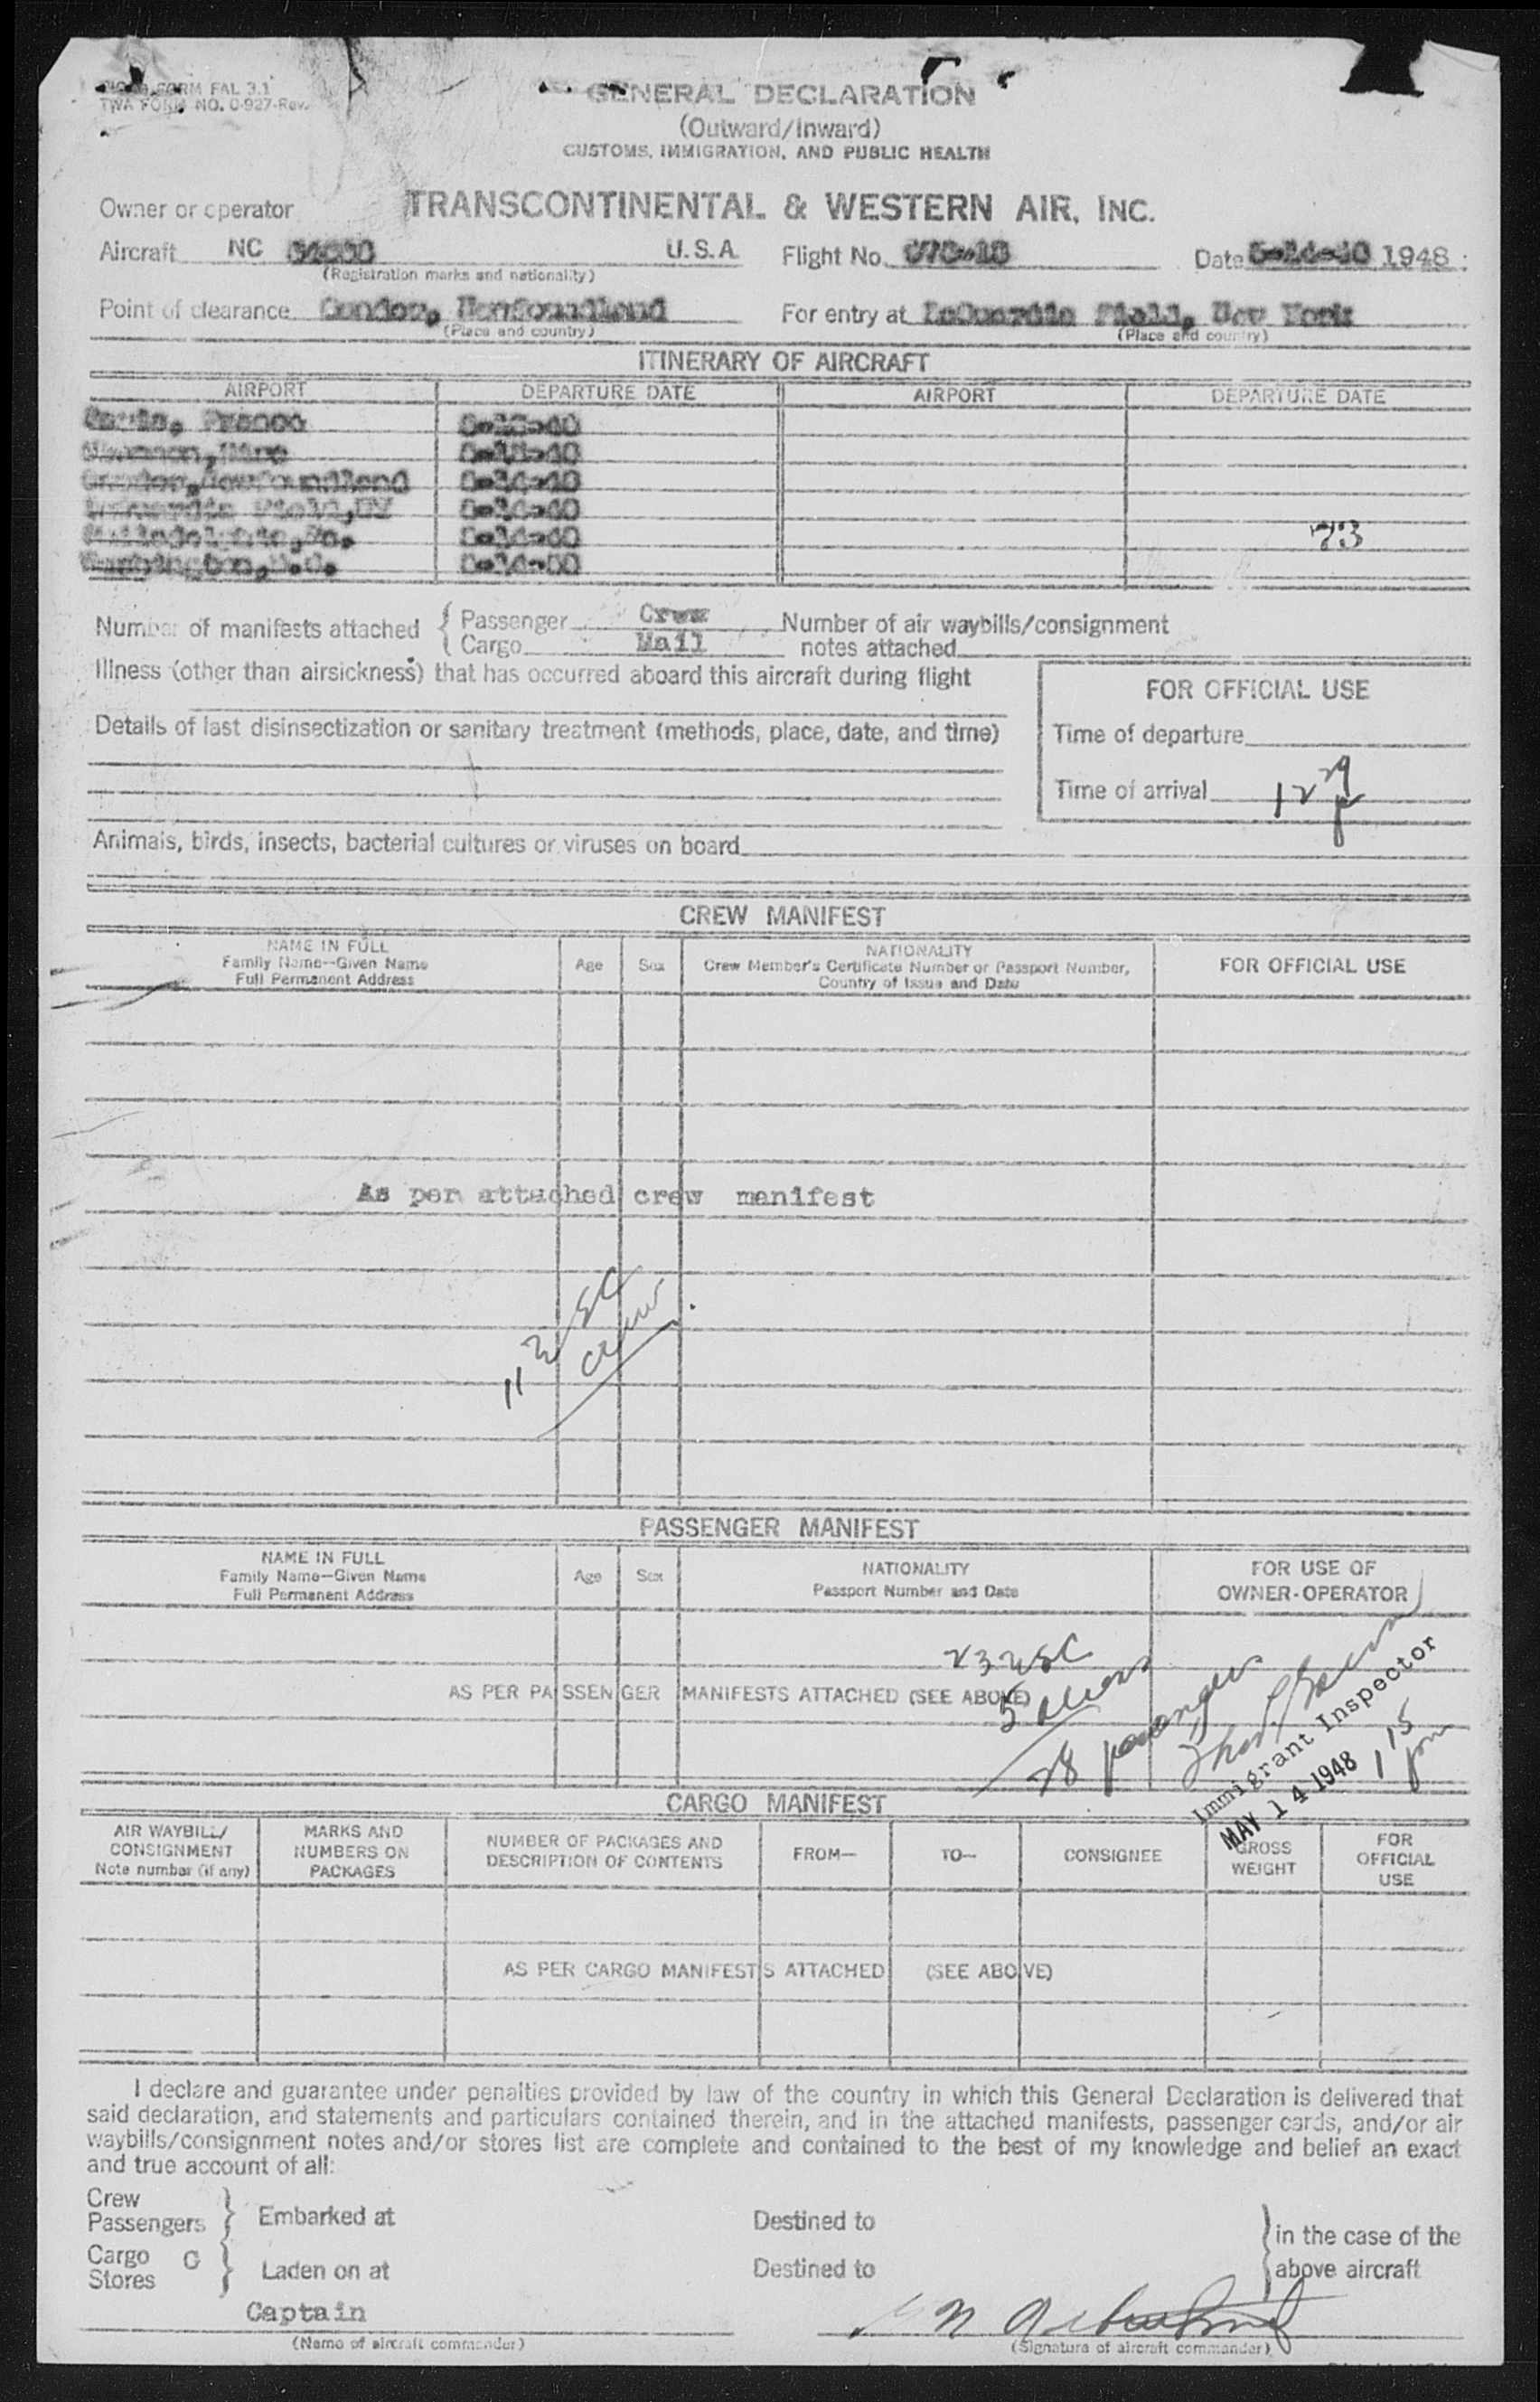 FORM FAL 3.1
TWA FORM NO. 0-927-Rev.
GENERAL DECLARATION
(Outward/Inward)
CUSTOMS, IMMIGRATION, AND PUBLIC HEALTH
Owner or operator TRANSCONTINENTAL & WESTERN AIR, INC.
Aircraft NC U.S.A. Flight No. Date 1948
(Registration marks and nationality)
Point of clearance Gander, Newfoundland For entry at LaGuardia Field, New York
(Place and country) (Place and country)
ITINERARY OF AIRCRAFT
AIRPORT DEPARTURE DATE AIRPORT DEPARTURE DATE
Paris, France
Shannon, Eire
Gander, Newfoundland
LaGuardia Field, NY
Philadelphia, Pa. 73
Washington, D.C.
Number of manifests attached { Passenger Crew Number of air waybills/consignment
Cargo Mail notes attached
Illness (other than airsickness) that has occurred aboard this aircraft during flight
FOR OFFICIAL USE
Details of last disinsectization or sanitary treatment (methods, place, date, and time)
Time of departure
Time of arrival 12 29 p
Animals, birds, insects, bacterial cultures or viruses on board
CREW MANIFEST
NAME IN FULL
Family Name—Given Name
Full Permanent Address
Age Sex NATIONALITY
Crew Member's Certificate Number or Passport Number,
Country of Issue and Date
FOR OFFICIAL USE
As per attached crew manifest
11 USC
crew
PASSENGER MANIFEST
NAME IN FULL
Family Name—Given Name
Full Permanent Address
Age Sex NATIONALITY
Passport Number and Date
FOR USE OF
OWNER-OPERATOR
23 USC
AS PER PASSENGER MANIFESTS ATTACHED (SEE ABOVE)
5 aliens
28 passengers
Immigrant Inspector
MAY 14 1948 1 15 pm
CARGO MANIFEST
AIR WAYBILL/
CONSIGNMENT
Note number (if any)
MARKS AND
NUMBERS ON
PACKAGES
NUMBER OF PACKAGES AND
DESCRIPTION OF CONTENTS
FROM— TO— CONSIGNEE
GROSS
WEIGHT
FOR
OFFICIAL
USE
AS PER CARGO MANIFESTS ATTACHED (SEE ABOVE)
I declare and guarantee under penalties provided by law of the country in which this General Declaration is delivered that
said declaration, and statements and particulars contained therein, and in the attached manifests, passenger cards, and/or air
waybills/consignment notes and/or stores list are complete and contained to the best of my knowledge and belief an exact
and true account of all:
Crew
Passengers } Embarked at Destined to } in the case of the
Cargo G
Stores } Laden on at Destined to above aircraft
Captain
(Name of aircraft commander) (Signature of aircraft commander)